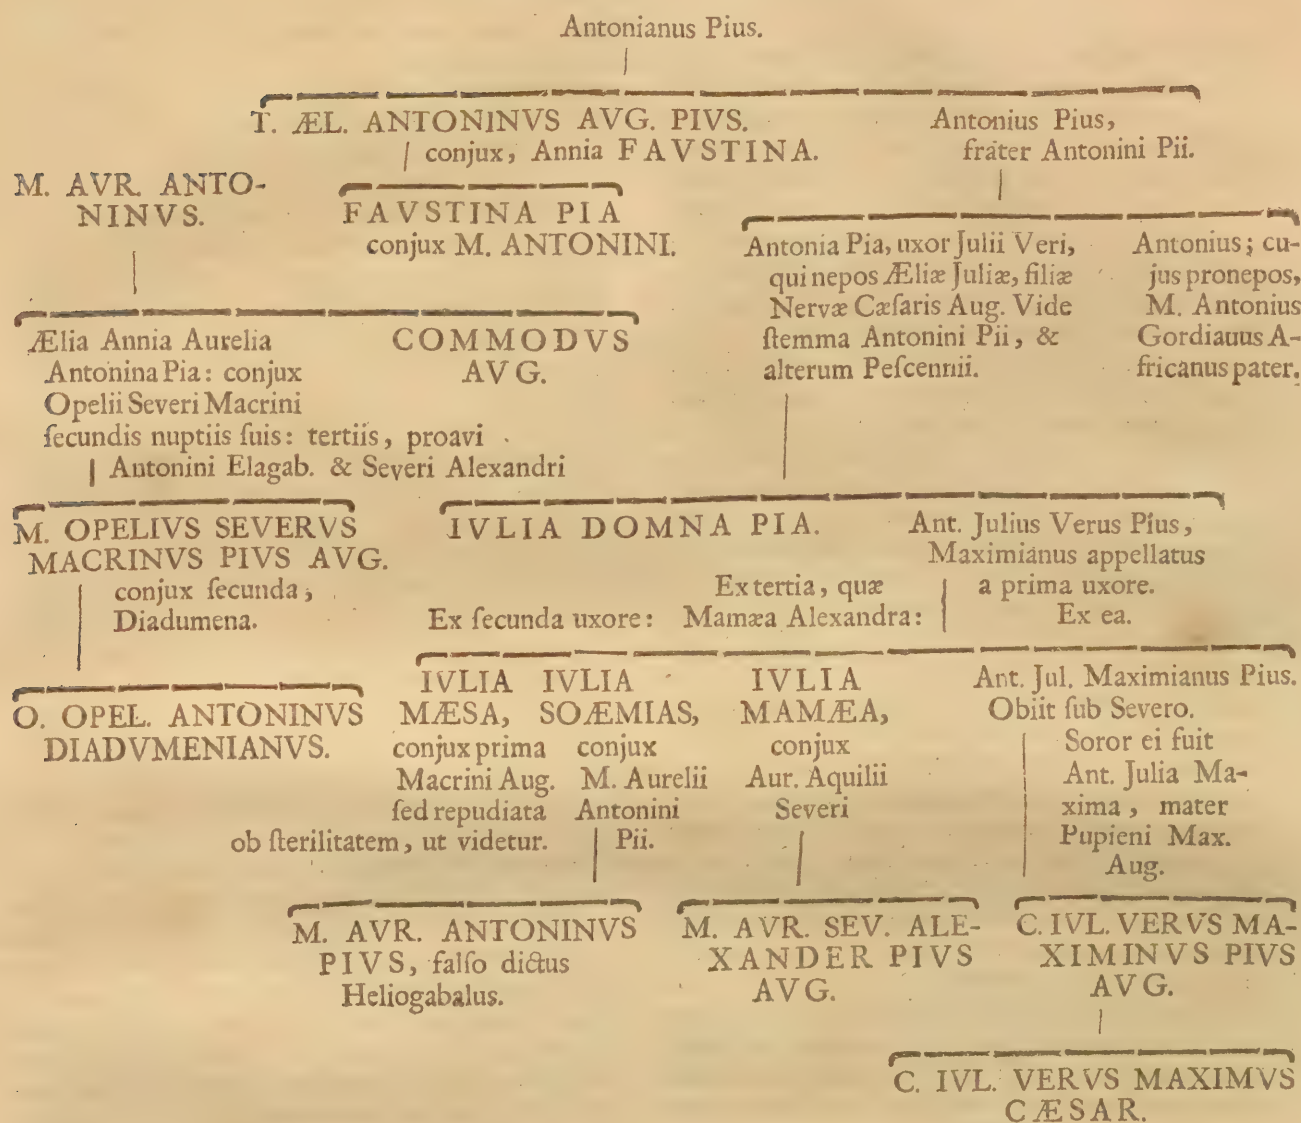 Antonianus Pius.
T. ÆL. ANTONINVS AVG. PIVS.
conjux, Annia FAVSTINA.
Antonius Pius,
frater Antonini Pii.
M. AVR. ANTO-
NINVS.
FAVSTINA PIA
conjux M. ANTONINI.
Antonia Pia, uxor Julii Veri,
qui nepos Æliæ Juliæ, filiæ
Nervæ Cæſaris Aug. Vide
ſtemma Antonini Pii, &
alterum Peſcennii.
Antonius; cu-
jus pronepos,
M. Antonius
Gordiauus A-
fricanus pater.
Ælia Annia Aurelia
Antonina Pia: conjux
Opelii Severi Macrini
ſecundis nuptiis ſuis: tertiis, proavi
Antonini Elagab. & Severi Alexandri
COMMODVS
AVG.
M. OPELIVS SEVERVS
MACRINVS PIVS AVG.
conjux ſecunda,
Diadumena.
IVLIA DOMNA PIA.
Ant. Julius Verus Pius,
Maximianus appellatus
a prima uxore.
Ex ea.
Ex ſecunda uxore:
Ex tertia, quæ
Mamæa Alexandra:
O. OPEL. ANTONINVS
DIADVMENIANVS.
IVLIA
MÆSA,
conjux prima
Macrini Aug.
ſed repudiata
ob ſterilitatem, ut videtur.
IVLIA
SOÆMIAS,
conjux
M. Aurelii
Antonini
Pii.
IVLIA
MAMÆA,
conjux
Aur. Aquilii
Severi
Ant. Jul. Maximianus Pius.
Obiit ſub Severo.
Soror ei fuit
Ant. Julia Ma-
xima, mater
Pupieni Max.
Aug.
M. AVR. ANTONINVS
PIVS, falſo dictus
Heliogabalus.
M. AVR. SEV. ALE-
XANDER PIVS
AVG.
C. IVL. VERVS MA-
XIMINVS PIVS
AVG.
C. IVL. VERVS MAXIMVS
CÆSAR.